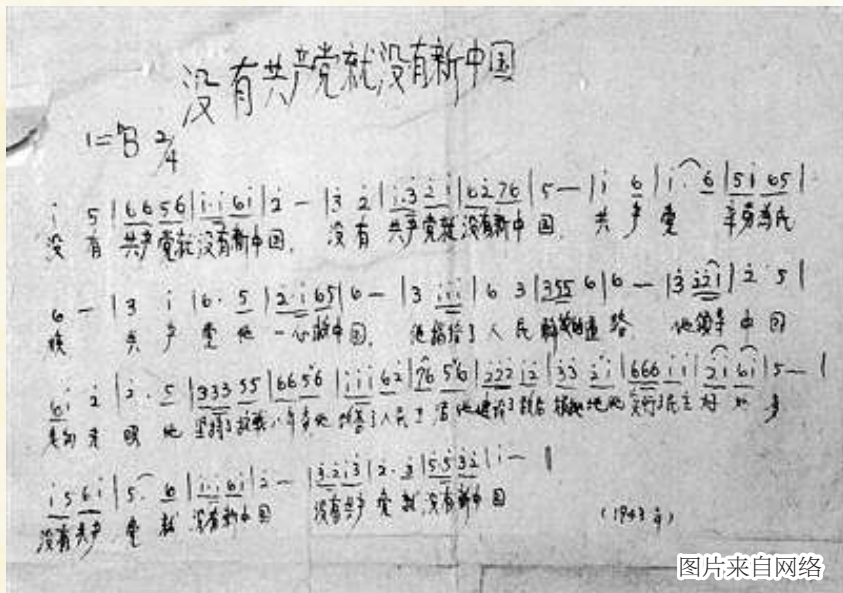 没有共产党就没有新中国
1=ᵇB 2/4
i̇ 5 | 6 6 5 6 | i̇· i̇ 6 i̇ | 2̇ — | 3̇ 2̇ | i̇· 3̇ 2̇ i̇ | 6 2̇ 7 6 | 5 — | i̇ 6 | i̇· 6 | 5 i̇ 6 5 |
没 有 共产党就没有新中国. 没 有 共产党就没有新中国. 共 产 党 辛劳为民
6 — | 3 i̇ | 6· 5 | 2̇· i̇ 6 5 | 6 — | 3 i̇ i̇ i̇ | 6 3 | 3 5 5 6 | 6 — | 3̇ 2̇ 2̇ i̇ | 2̇ 5 |
族 共 产 党 他 一心救中国. 他指给了人民解放的道路. 他领导中国
6 i̇ 2̇ | 2̇· 5 | 3 3 3 5 5 | 6 6 5 6 | i̇ i̇ i̇ 6 2̇ | 7 6 5 6 | 2̇ 2̇ 2̇ i̇ 2̇ | 3̇ 3̇ 2̇ i̇ | 6 6 6 i̇ i̇ | 2̇ i̇ 6 i̇ | 5 — |
他 坚持了抗战八年多他改善了人民生活他建设了敌后根据地他实行了民主好处多
i̇ 5 6 i̇ | 5· 6 | i̇· i̇ 6 i̇ | 2̇ — | 3̇· 2̇ i̇ 3̇ | 2̇· 3̇ | 5̇· 5̇ 3̇ 2̇ | i̇ — ‖
没有共产 党 就 没有新中国 没有共产 党 就 没有新中国
(1943年)
图片来自网络